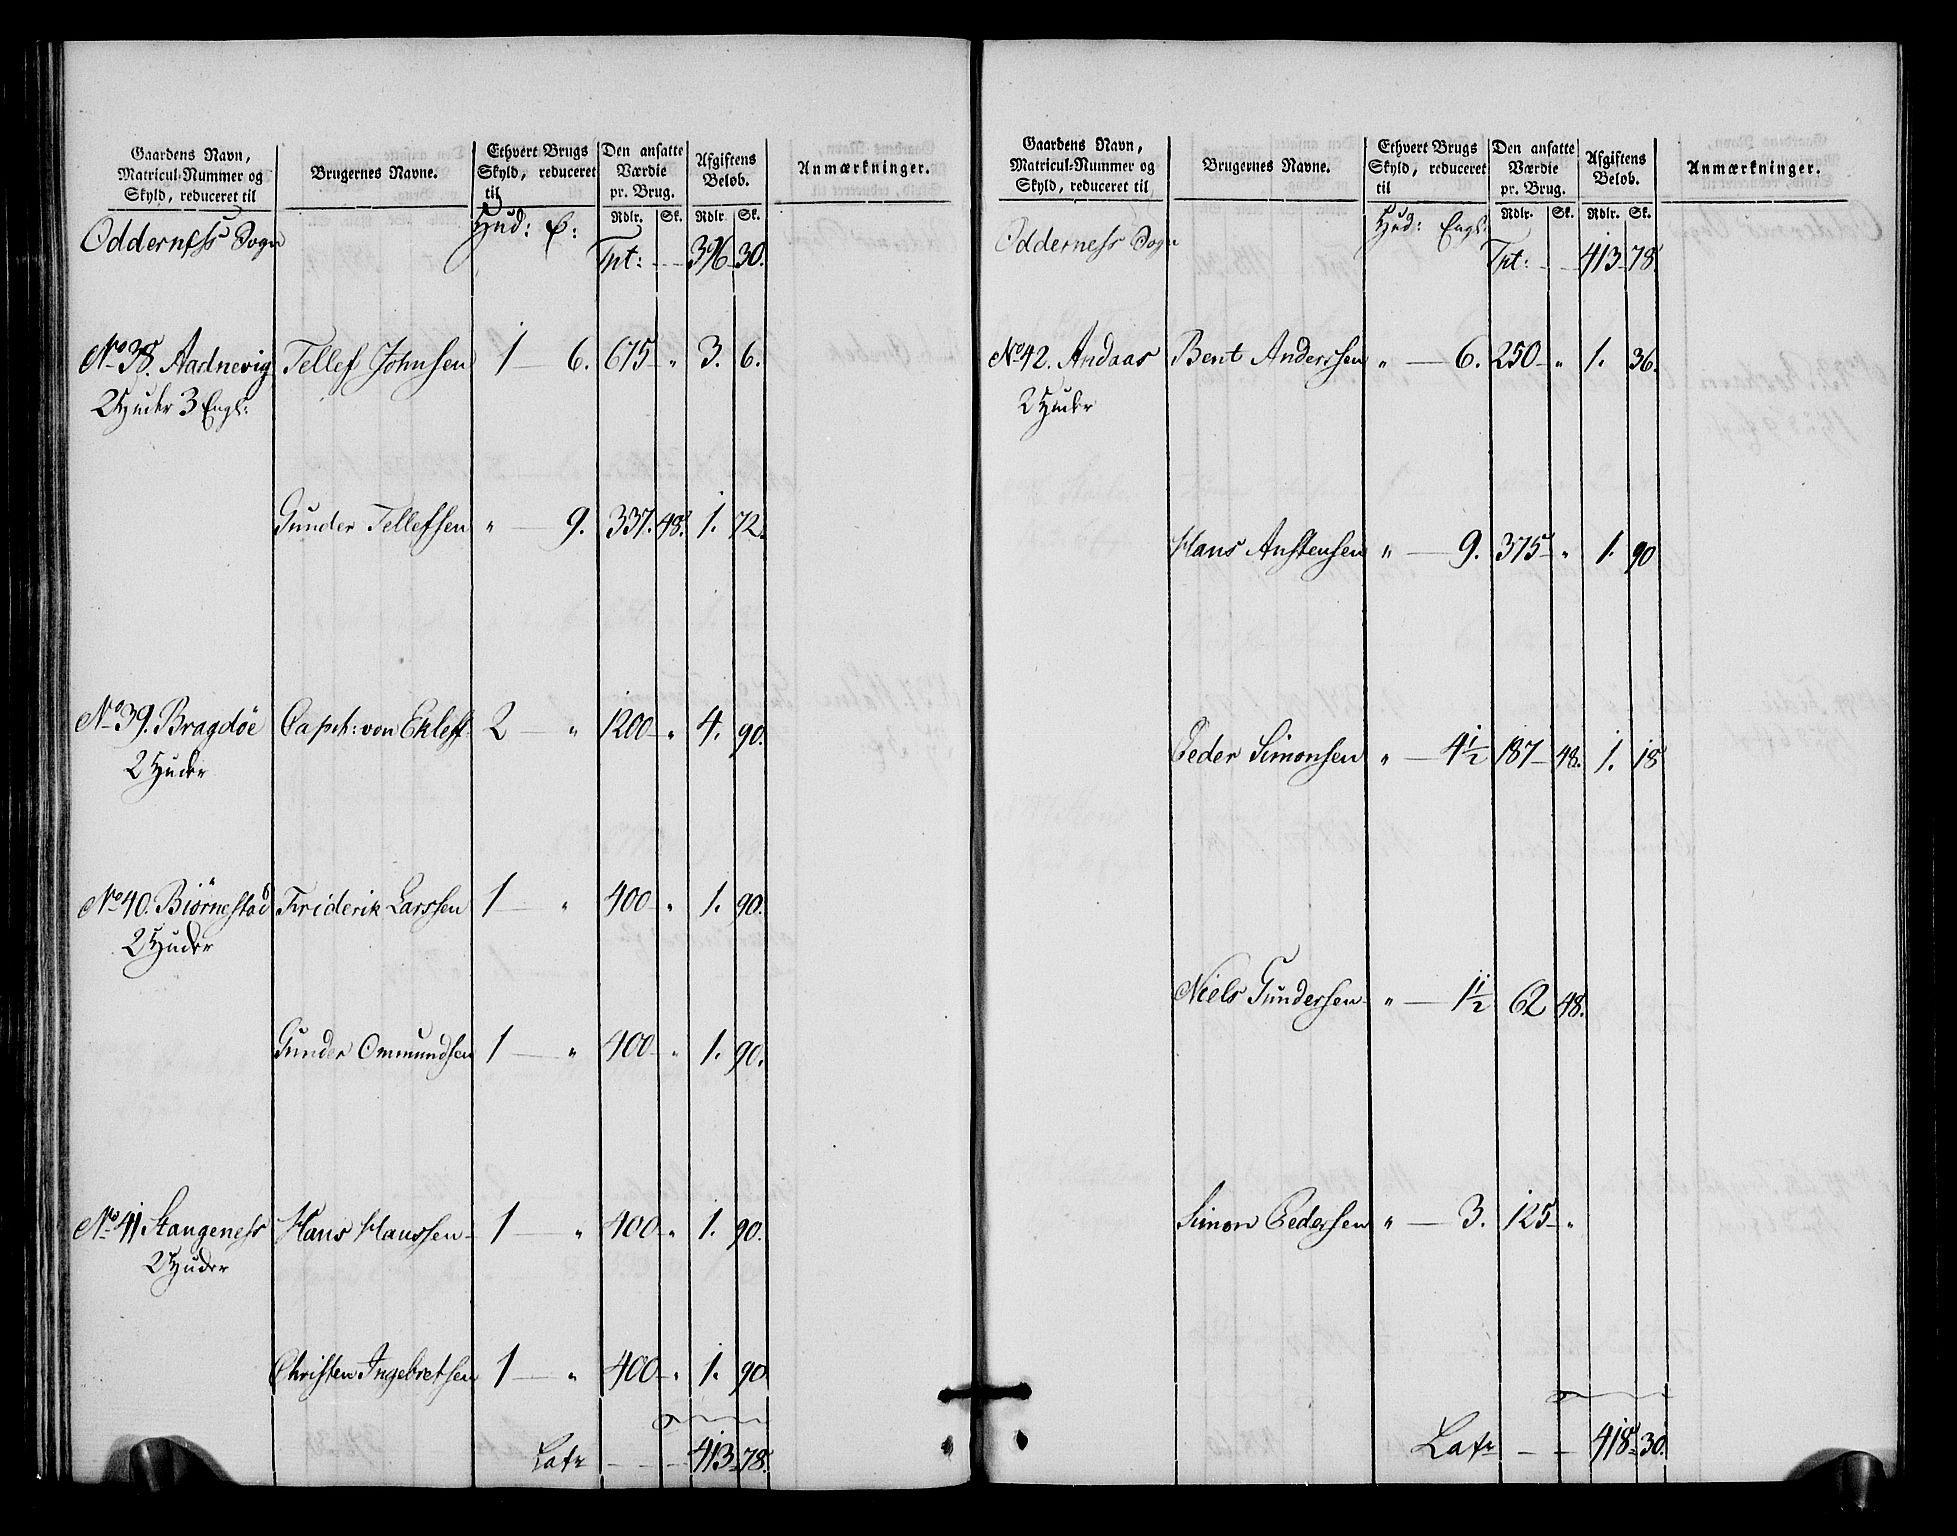 Gaardens Navn,
Matricul-Nummer og
Skyld, reduceret til
Brugernes Navne.
Ethvert Brugs
Skyld, reduceret
til
Den ansatte
Værdie
pr. Brug.
Afgiftens
Beløb.
Anmærkninger.
Rdlr. Sk. Rdlr. Sk.
Odderness Sogn Hud: E:
Tpt: - - 396 30.
No 38. Aadnevig Tellef Johnsen 1 - 6. 675 - " 3. 6.
2 Huder 3 Engl:
Gunder Tellefsen " - 9. 337. 48. 1. 72.
No 39. Bragdøe Capit: von Ekleff 2 - " 1200 - " 4. 90.
2 Huder
No 40. Biørnestad Friderik Larssen 1 - " 400 - " 1. 90.
2 Huder
Gunder Ommundsen 1 - " 400 - " 1. 90.
No 41 Stangeness Hans Hanssen - 1 - " 400 - " 1. 90.
2 Huder
Christen Ingebretsen 1 - " 400 - " 1. 90
Latr - - - 413 - 78.
Gaardens Navn,
Matricul-Nummer og
Skyld, reduceret til
Brugernes Navne.
Ethvert Brugs
Skyld, reduceret
til
Den ansatte
Værdie
pr. Brug.
Afgiftens
Beløb.
Anmærkninger.
Rdlr. Sk. Rdlr. Sk.
Odderness Sogn Hud: Engl:
Tpt: - - 413 - 78.
No 42. Andaas Bent Anderssen " - 6. 250 - " 1. 36.
2 Huder
Hans Anstensen " - 9. 375 " 1. 90
Peder Simonsen " - 4 1/2 187 - 48. 1. 18
Niels Gundersen - " - 1 1/2 62 48.
Simon Pedersen " - 3. 125 - "
Latr - - 418 - 30.